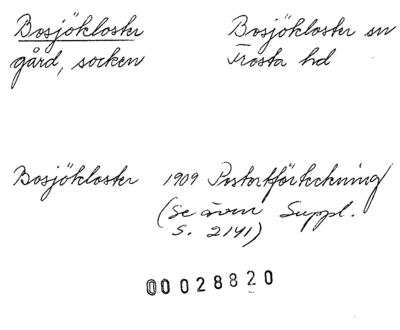 Bosjökloster Bosjökloster sn
gård, socken Frosta hd
Bosjökloster 1909 Postortförteckning
(se även Suppl.
s. 2141)
00 028820